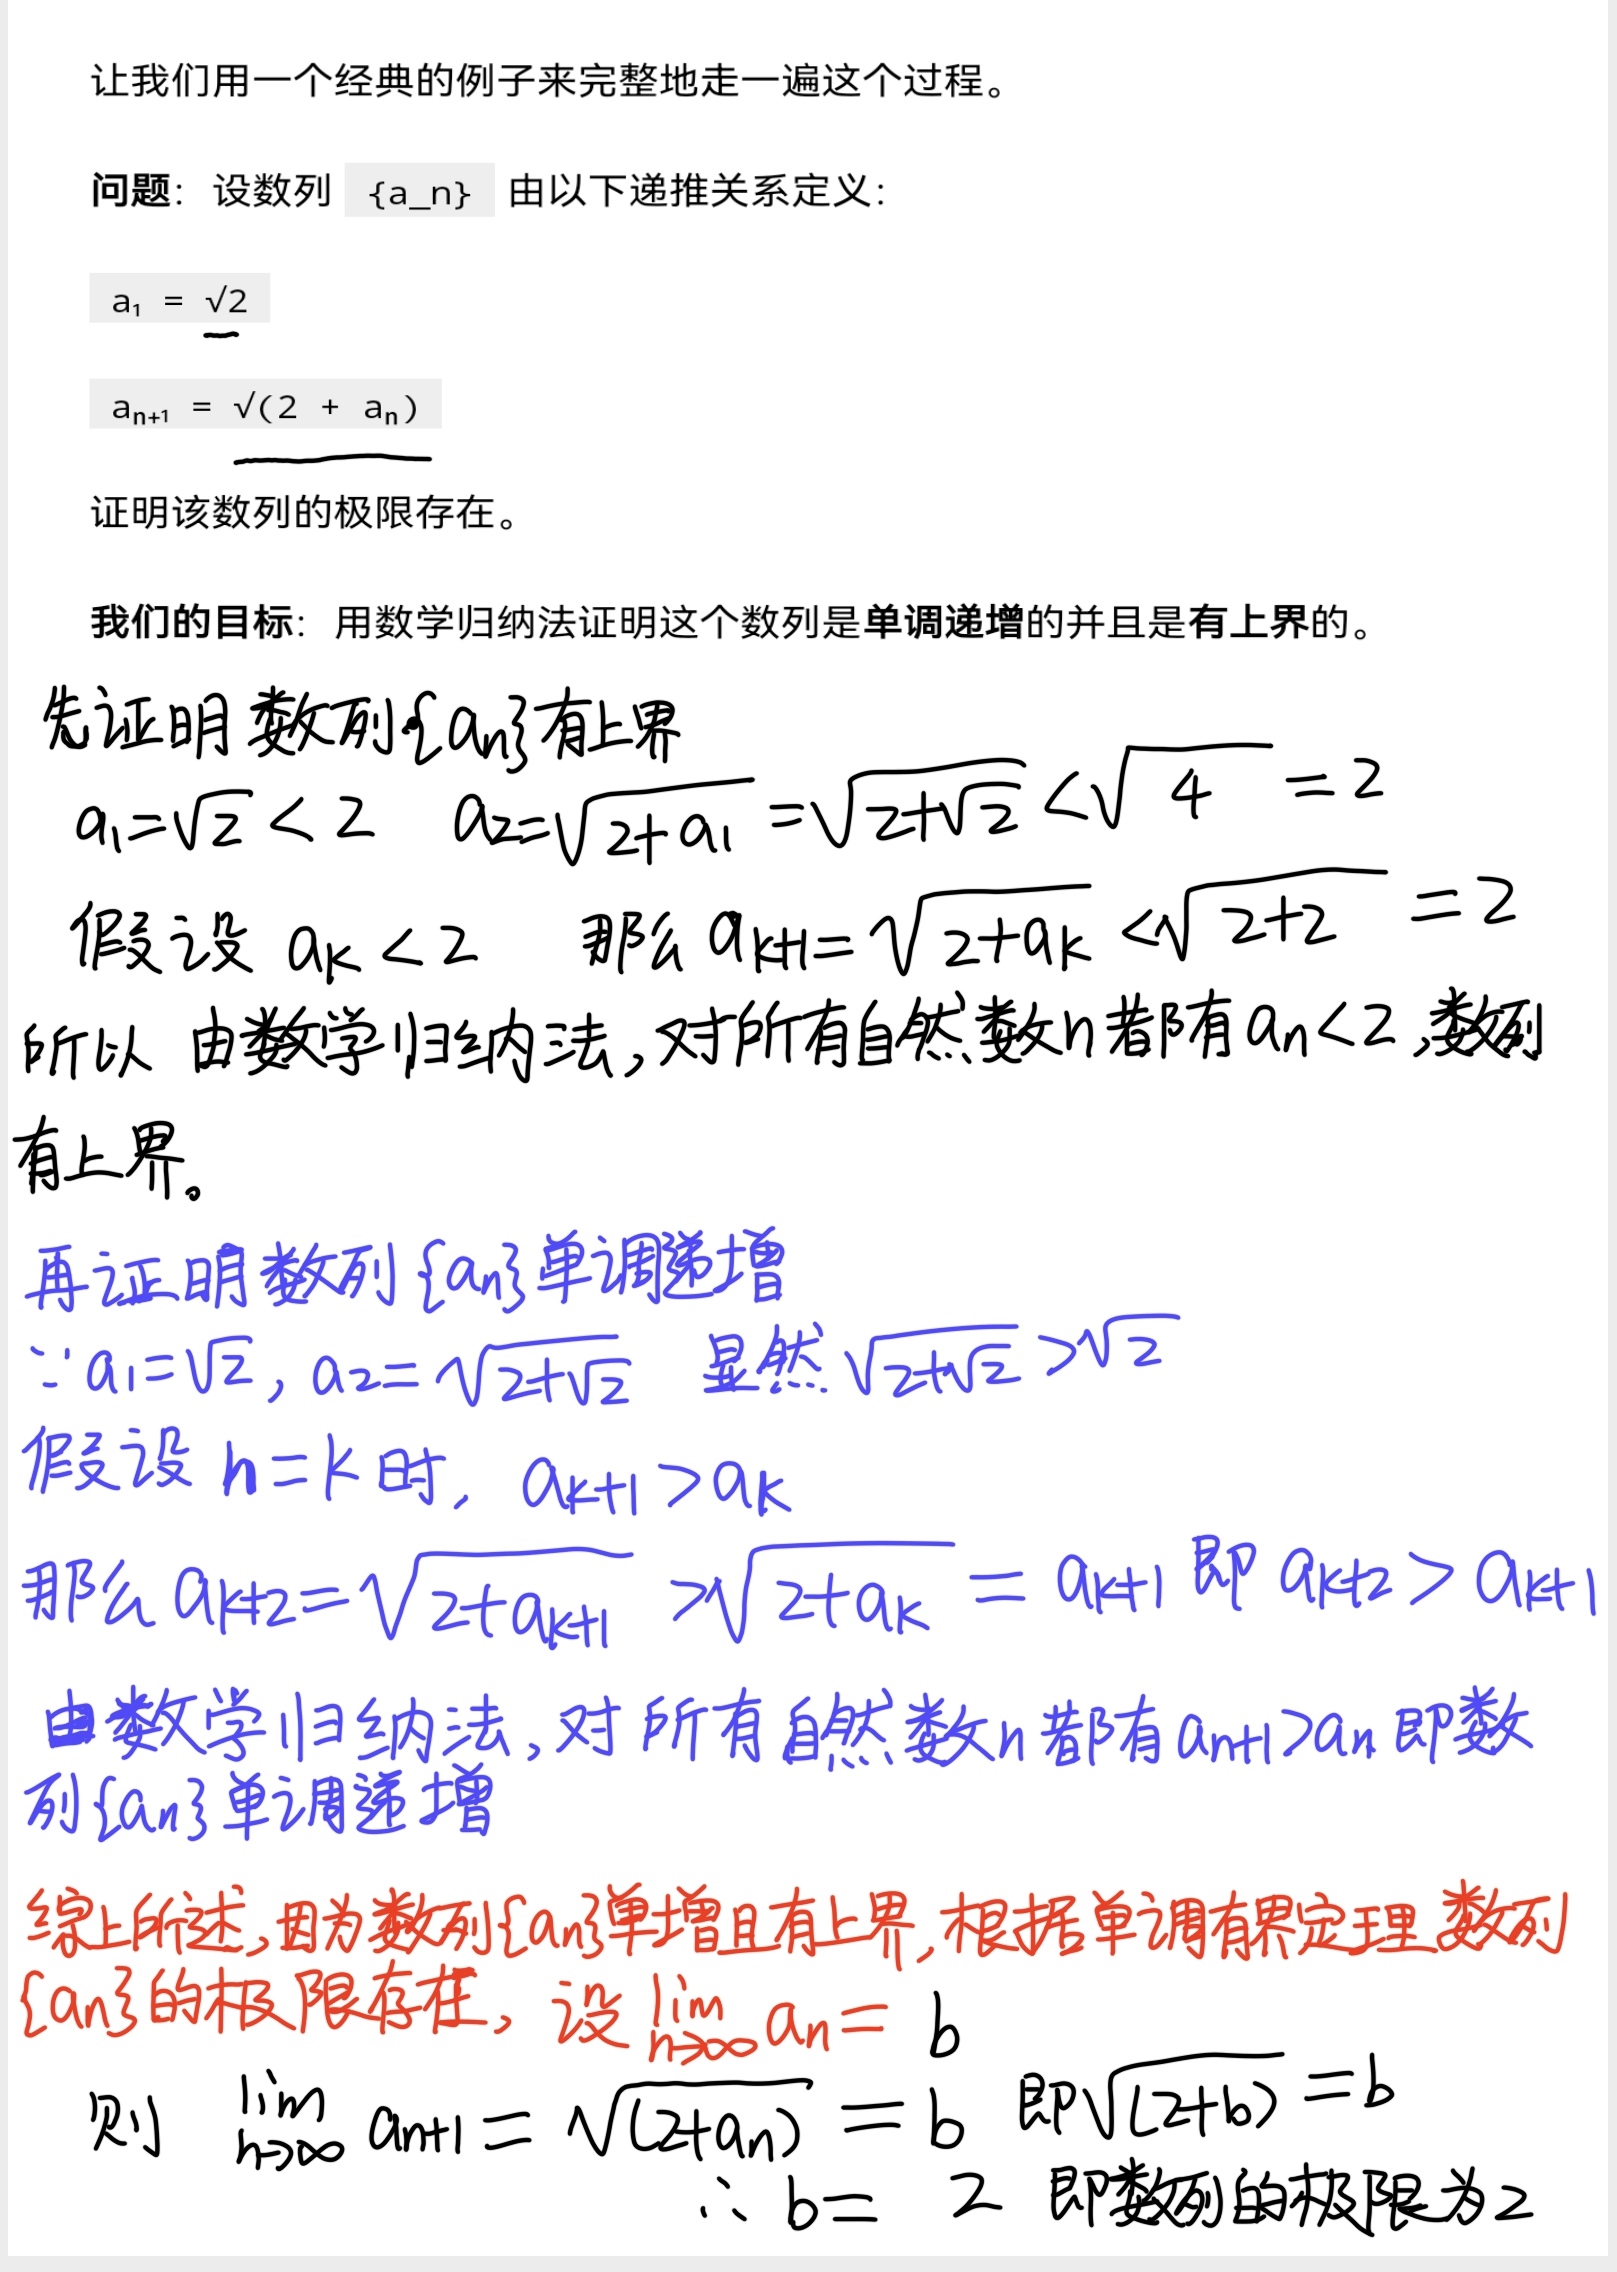 让我们用一个经典的例子来完整地走一遍这个过程。
问题： 设数列 {a_n} 由以下递推关系定义：
a₁ = √2
aₙ₊₁ = √(2 + aₙ)
证明该数列的极限存在。
我们的目标： 用数学归纳法证明这个数列是单调递增的并且是有上界的。
先证明数列{aₙ}有上界
a₁=√2 < 2 a₂=√(2+a₁) =√(2+√2) <√4 = 2
假设 aₖ < 2 那么 aₖ₊₁= √(2+aₖ) <√(2+2) = 2
所以 由数学归纳法,对所有自然数n都有aₙ<2,数列
有上界。
再证明数列{aₙ}单调递增
∵a₁=√2, a₂=√(2+√2) 显然√(2+√2) >√2
假设 n=k时, aₖ₊₁>aₖ
那么aₖ₊₂=√(2+aₖ₊₁) >√(2+aₖ) = aₖ₊₁ 即 aₖ₊₂> aₖ₊₁
由数学归纳法,对所有自然数n都有aₙ₊₁>aₙ即数
列{aₙ}单调递增
综上所述,因为数列{aₙ}单增且有上界,根据单调有界定理 数列
{aₙ}的极限存在, 设 lim n→∞ aₙ= b
则 lim n→∞ aₙ₊₁= √(2+aₙ) = b 即√(2+b) = b
∴ b= 2 即数列的极限为2